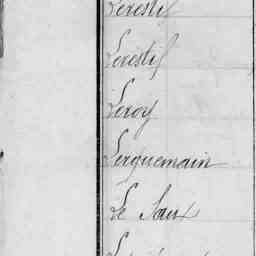 Lerestif
Lerestif
Leroy
Lerguemain
Le Saux